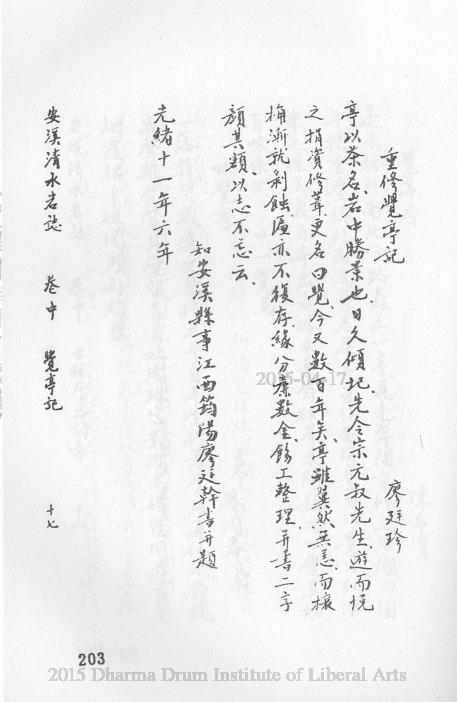 重修覺亭記
廖廷珍
亭以茶名、岩中勝景也、日久傾圮、先令宗元叔先生、遊而悅
之、捐資修葺、更名曰覺、今又數百年矣、亭雖翼然無恙、而榱
桷漸就剝蝕、匾亦不復存、緣分廉數金、飭工整理、并書二字
顏其額、以志不忘云、
知安溪縣事江西筠陽廖廷幹書并題
光緒十一年六年
安溪清水岩誌 卷中 覺亭記 十七
203
2015-04-17
2015 Dharma Drum Institute of Liberal Arts